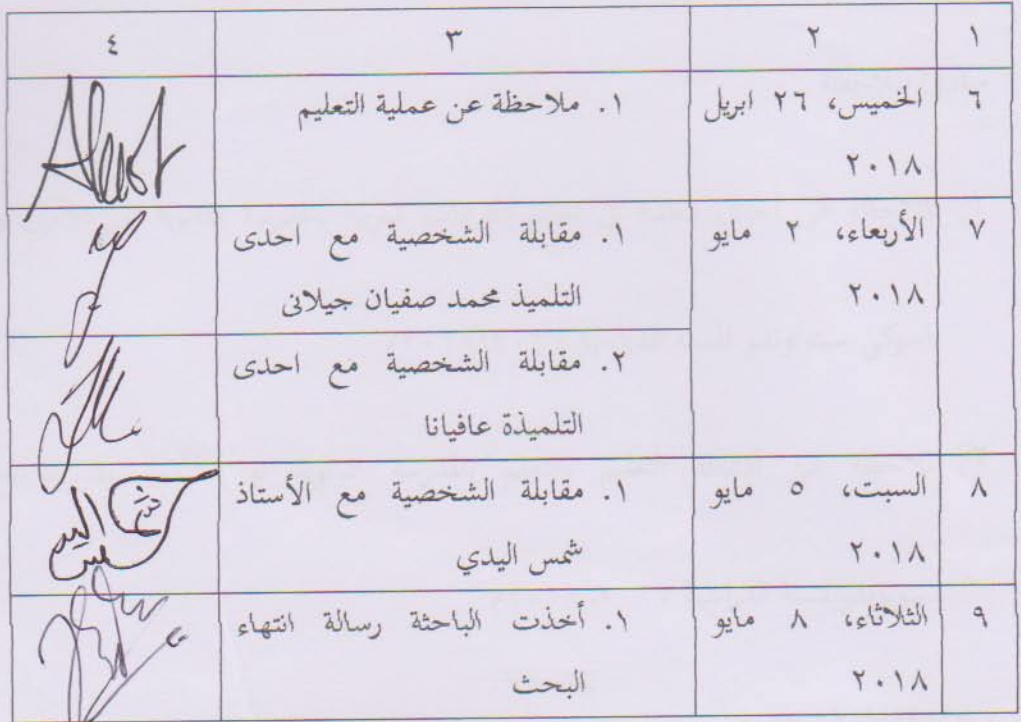 ١ ٢ ٣ ٤
٦ الخميس، ٢٦ ابريل ١. ملاحظة عن عملية التعليم
٢٠١٨
٧ الأربعاء، ٢ مايو ١. مقابلة الشخصية مع احدى
٢٠١٨ التلميذ محمد صفيان جيلانى
٢. مقابلة الشخصية مع احدى
التلميذة عافيانا
٨ السبت، ٥ مايو ١. مقابلة الشخصية مع الأستاذ
٢٠١٨ شمس اليدي
٩ الثلاثاء، ٨ مايو ١. أخذت الباحثة رسالة انتهاء
٢٠١٨ البحث